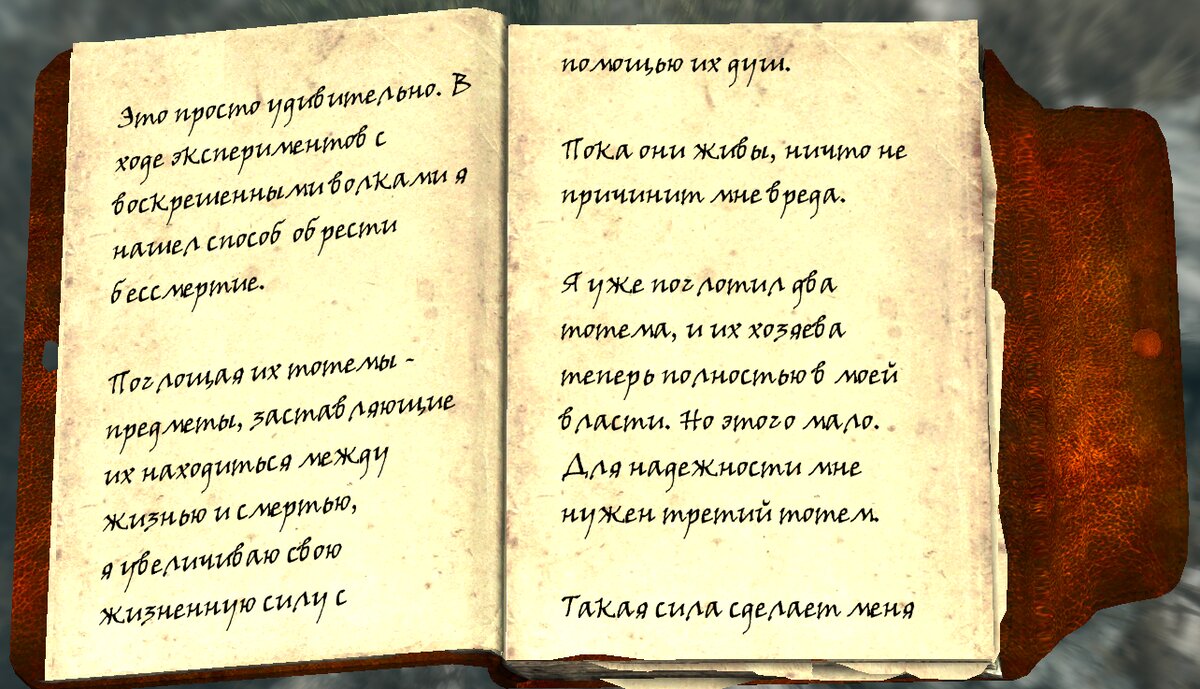 Это просто удивительно. В
ходе экспериментов с
воскрешенными волками я
нашел способ обрести
бессмертие.
Поглощая их тотемы -
предметы, заставляющие
их находиться между
жизнью и смертью,
я увеличиваю свою
жизненную силу с
помощью их душ.
Пока они живы, ничто не
причинит мне вреда.
Я уже поглотил два
тотема, и их хозяева
теперь полностью в моей
власти. Но этого мало.
Для надежности мне
нужен третий тотем.
Такая сила сделает меня